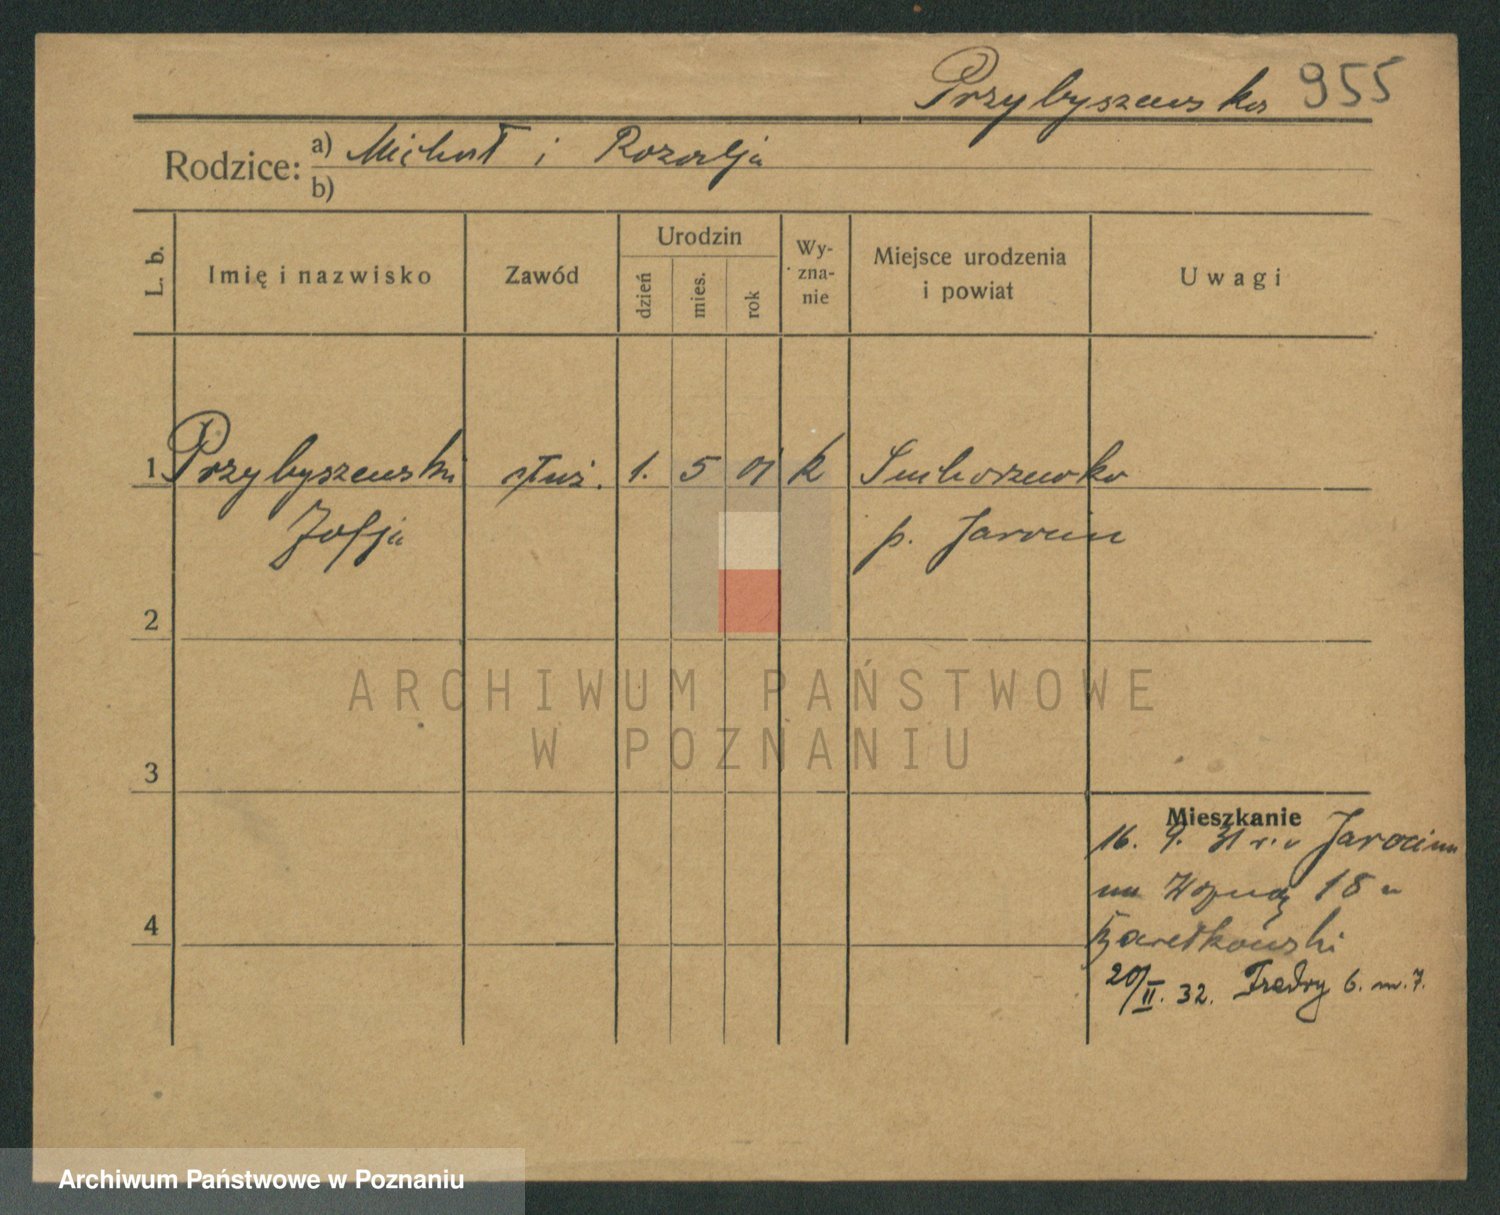 Przybyszewska 955
Rodzice: a) Michał i Rozalja
b)
L. b. Imię i nazwisko Zawód Urodzin dzień mies. rok Wy-zna-nie Miejsce urodzenia i powiat Uwagi
1 Przybyszewski służ. 1. 5 01 k Suchorzewko
Zofja p. Jarocin
2
ARCHIWUM PAŃSTWOWE
W POZNANIU
3
Mieszkanie
16. 9. 31 r. Jarocina
18
4
20/II. 32. Fredry 6. m. 7.
Archiwum Państwowe w Poznaniu